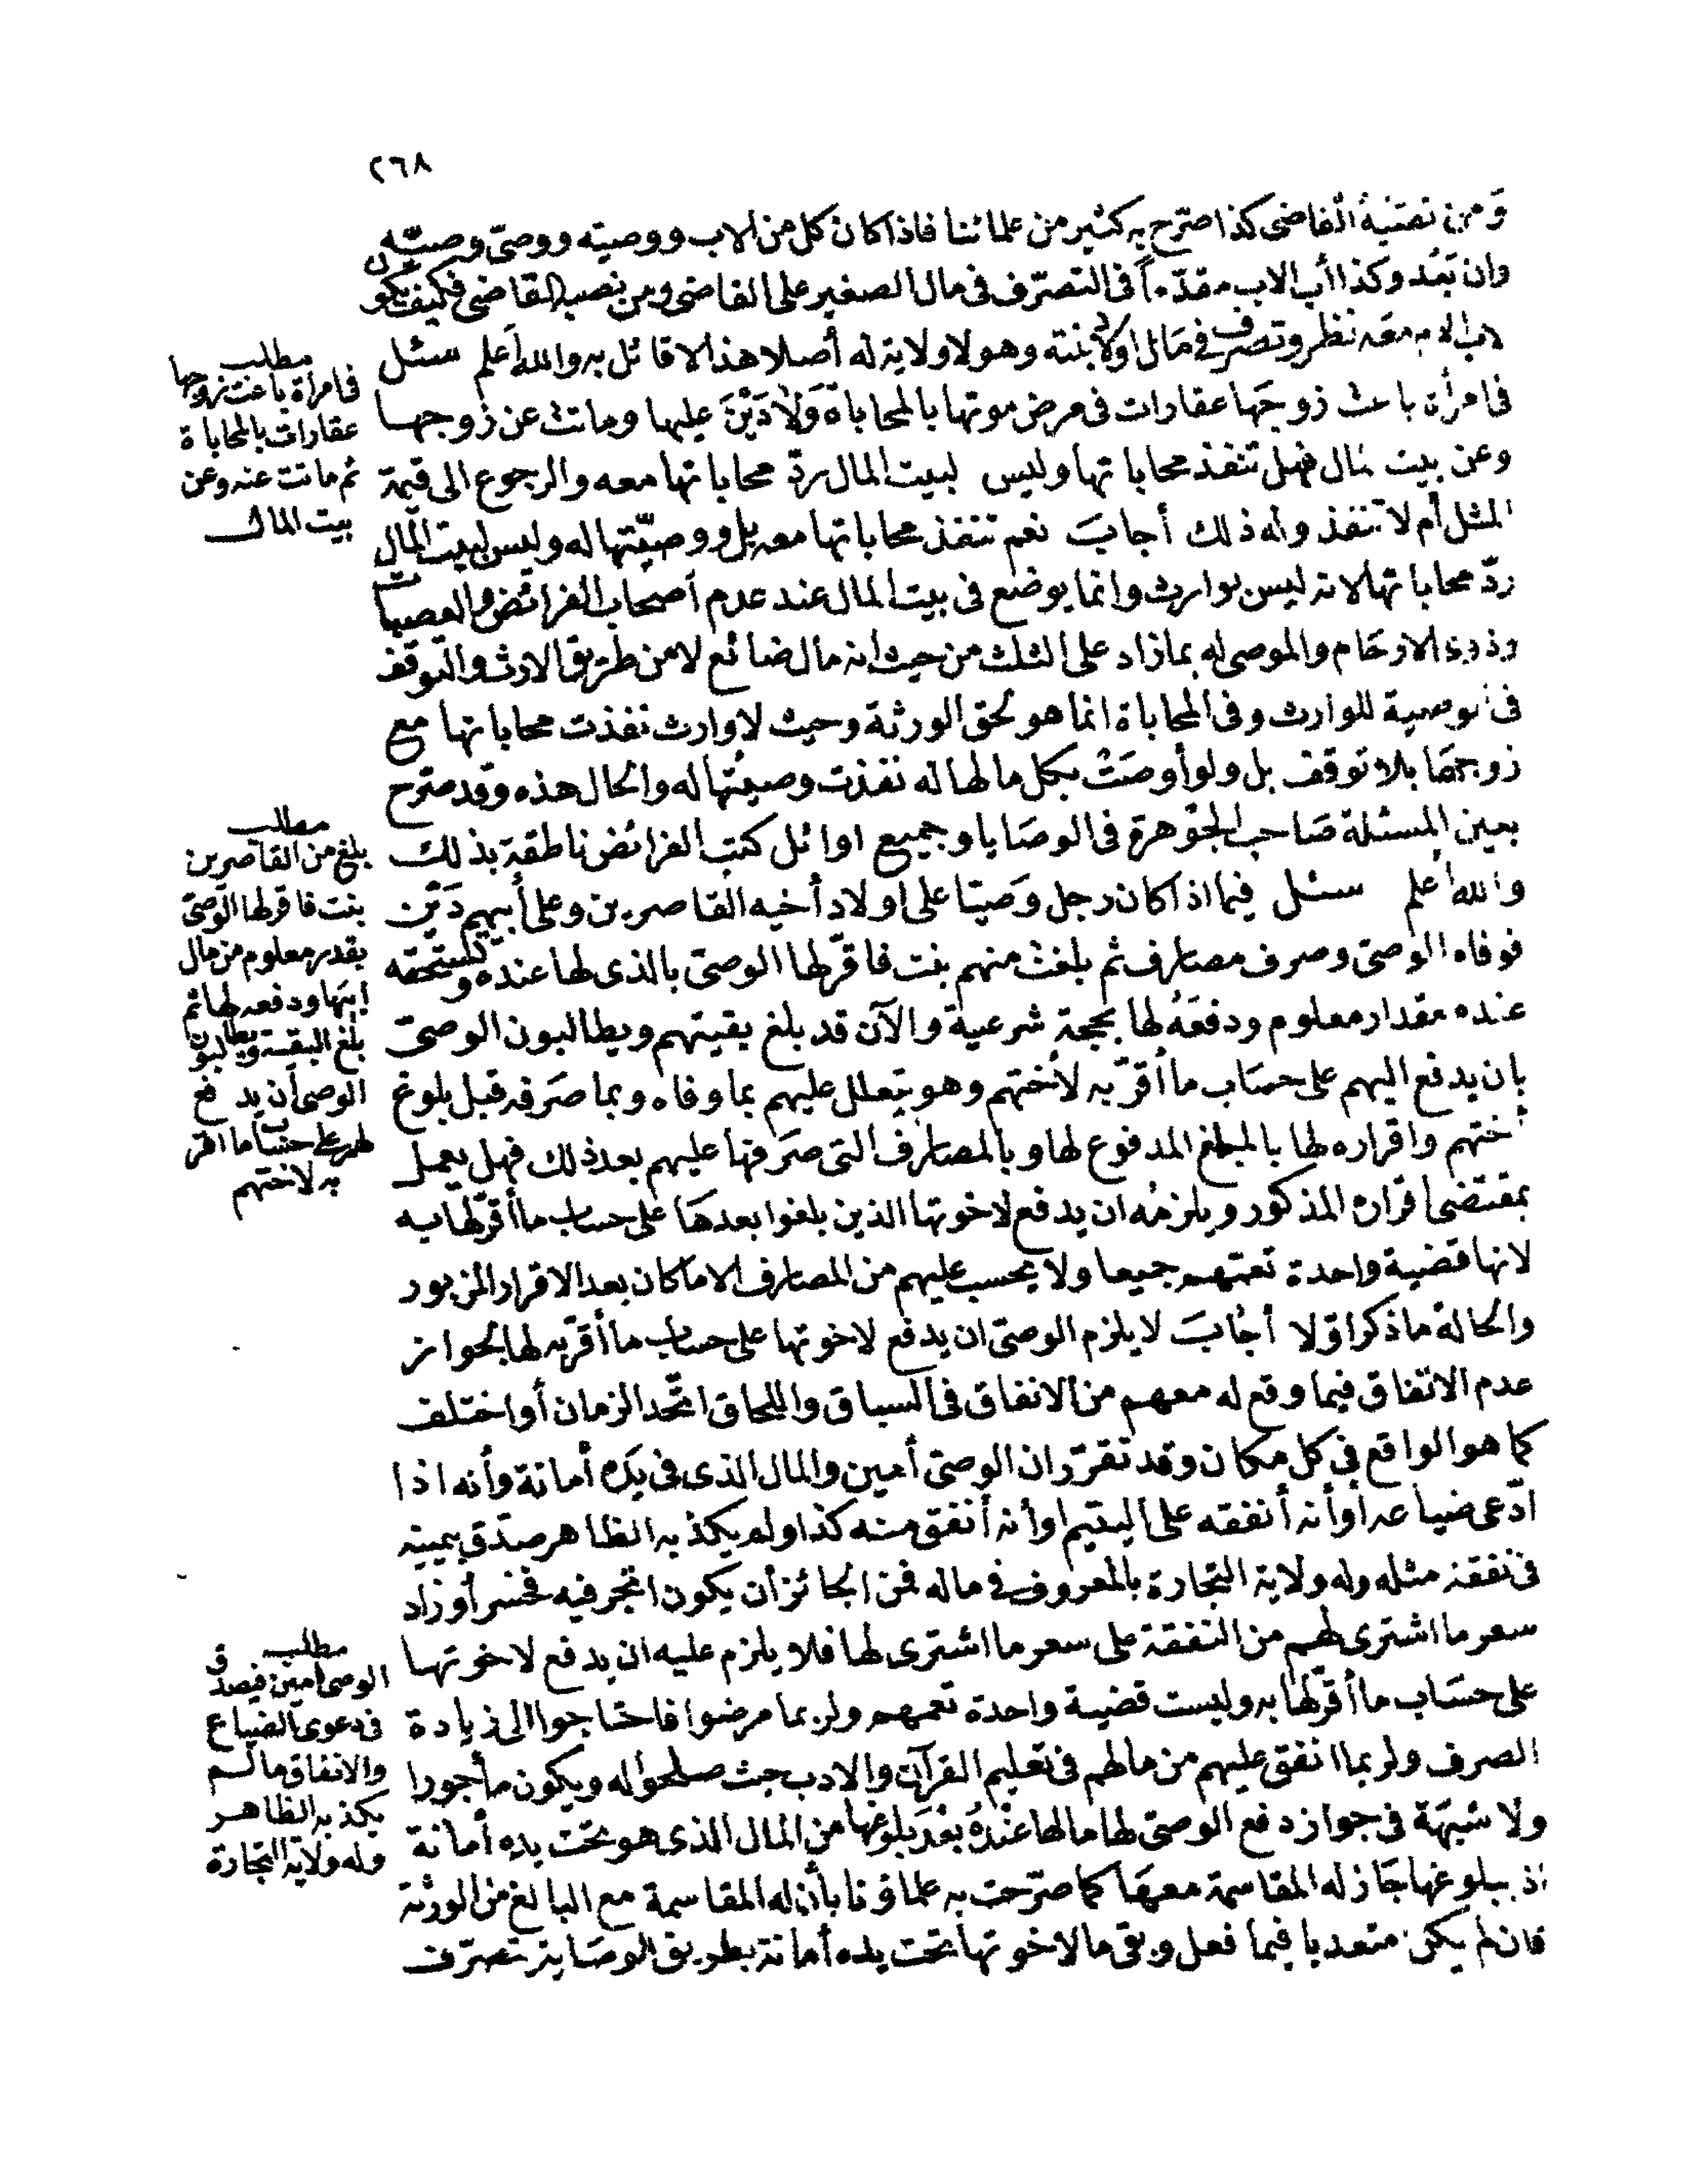 ٢٦٨
ومن نصبه القاضى كذا صرّح به كثير من علمائنا فاذا كان كل من الاب ووصيته ووصىّ وصيّه
وان بَعُد وكذا أب الاب مقدّماً فى التصرّف فى مال الصغير على القاضى ومن نصبه القاضى فكيف يكون
لاب الام معه نظر وتصرف فى مال اولاد بنته وهو لا ولاية له أصلا هذا لا قائل به والله أعلم سئل
فى امرأة باعت زوجَها عقارات فى مرض موتها بالمحاباة وَلَا دَيْنَ عليها وماتت عن زوجها
وعن بيت مال فهل تنفذ محاباتها وليس لبيت المال ردّ محاباتها معه والرجوع الى قيمة
المثل أم لا تنفذ وله ذلك أجابَ نعم تنفذ محاباتها معه بل ووصيّتها له وليس لبيت المال
ردّ محاباتها لانه ليس بوارث وانما يوضع فى بيت المال عند عدم أصحاب الفرائض والعصبات
وذوى الارحَام والموصى له بما زاد على الثلث من حيث انه مال ضائع لا من طريق الارث والتوقف
فى الوصية للوارث وفى المحاباة انما هو لحق الورثة وحيث لا وارث نفذت محاباتها مع
زوجهَا بلا توقف بل ولو أوصَتْ بكل مالها له نفذت وصيتُها له والحال هذه وقد صرّح
بعين المسئلة صَاحب الجَوهرة فى الوصَايا وجميع اوائل كتب الفرائض ناطقة بذلك
والله أعلم سئل فيما اذا كان رجل وَصيّا على اولاد أخيه القاصرين وعلى أبيهم دَيْن
فوفاه الوصىّ وصرف مصارف ثم بلغت منهم بنت فاقرّ لها الوصىّ بالذى لها عنده وتستحقه
عنده مقدار معلوم ودفعَهُ لها بحجة شرعية والآن قد بلغ بقيتهم ويطالبون الوصىّ
بان يدفع اليهم على حسَاب ما أقرّ به لأختهم وهو يتعلل عليهم بما وفاه وبما صَرفه قبل بلوغ
أختهم واقراره لها بالمبلغ المدفوع لها وبالمصارف التى صَرفها عليهم بعد ذلك فهل يعمل
بمقتضى اقراره المذكور ويلزمُه ان يدفع لاخوتها الذين بلغوا بعدهَا على حساب ما أقرّ لها به
لانها قضية واحدة تعمّهم جميعا ولا يحسب عليهم من المصارف الا ما كان بعد الاقرار المزبور
والحالة ما ذكر اوّلا أجابَ لا يلزم الوصىّ ان يدفع لاخوتها على حساب ما أقرّ به لها لجواز
عدم الاتفاق فيما وقع له معهم من الانفاق فى السباق واللحاق اتّحد الزمان أو اختلف
كما هو الواقع فى كل مكان وقد تقرّر ان الوصىّ أمين والمال الذى فى يَده أمانة وأنه اذا
ادّعى ضياعه اوأنه أنفقه على اليتيم اوأنه أنفق منه كذا ولم يكذبه الظاهر صدّق بيمينه
فى نفقة مثله وله ولاية التجارة بالمعروف فى ماله فمن الجائز أن يكون اتجر فيه فخسر أو زاد
سعر ما اشترى لهم من النفقة على سعر ما اشترى لها فلا يلزم عليه ان يدفع لاخوتها
على حسَاب ما أقرّ لها به وليست قضية واحدة تعمهم ولربما مرضوا فاحتاجوا الى زيادة
الصرف ولربما انفق عليهم من مالهم فى تعليم القرآن والادب حيث صلحوا له ويكون مأجورا
ولا شبهَة فى جواز دفع الوصىّ لها مالها عندَهُ بعْدَ بلوغها من المال الذى هو تحت يدِه أمانة
اذ ببلوغها جَاز له المقاسمة معهَا كما صرّحت به علماؤنا بأن له المقاسمة مع البالغ من الورثة
فان لم يكن متعديا فيما فعل وبقى ما لاخوتها تحت يده أمانة بطريق الوصَاية تصرّف
مطلب
فى امرأة باعت زوجها
عقارات بالمحاباة
ثم ماتت عنه وعن
بيت المال
مطلب
بلغ من القاصرين
بنت فاقر لها الوصىّ
بقدر معلوم من مال
ابيها ودفعه لها ثم
بلغ البقية ويطالبون
الوصى أن يدفع
لهم على حساب ما اقر
به لاختهم
مطلب
الوصى أمين فيصدق
فى دعوى الضياع
والانفاق ما لم
يكذبه الظاهر
وله ولاية التجارة